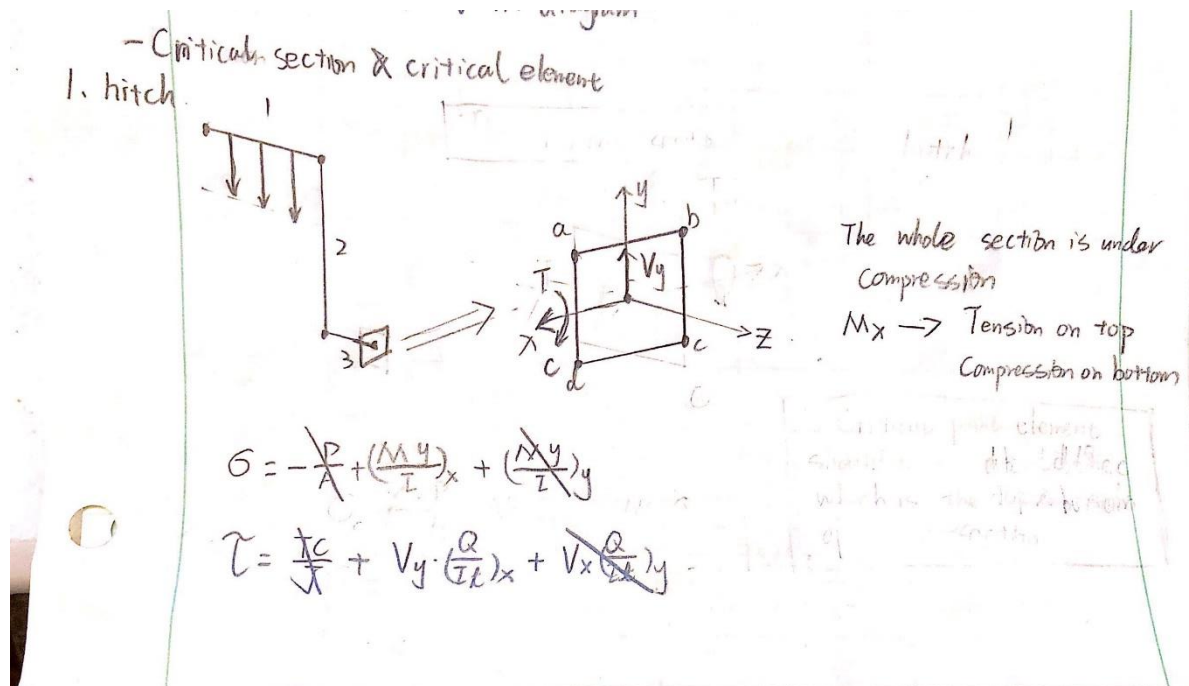 diagram
- Critical section & critical element
1. hitch
1
2
3
y
a
b
Vy
T
x
z
c
c
d
The whole section is under
compression
Mx → Tension on top
Compression on bottom
σ = - P/A + (My/I)x + (My/I)y
τ = Tc/J + Vy·(Q/It)x + Vx(Q/It)y